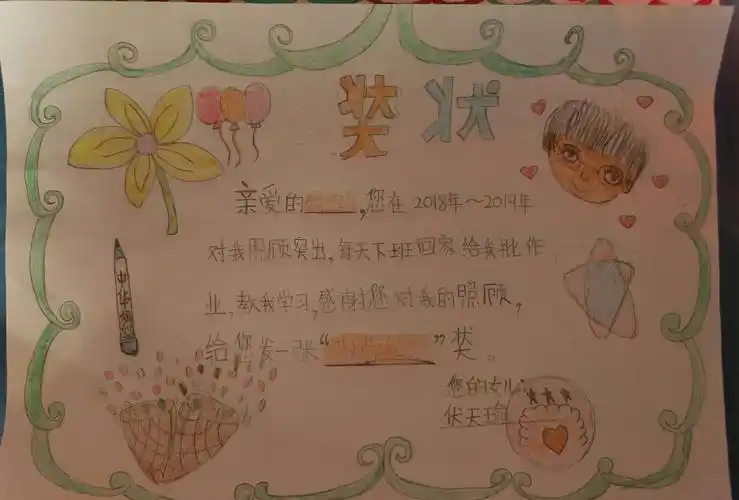 奖状
亲爱的 ,您在2018年～2019年
对我照顾突出,每天下班回家给我批作
业,教我学习,感谢您对我的照顾,
给您发一张“ ”奖。
您的女儿:
伏天瑜
中华